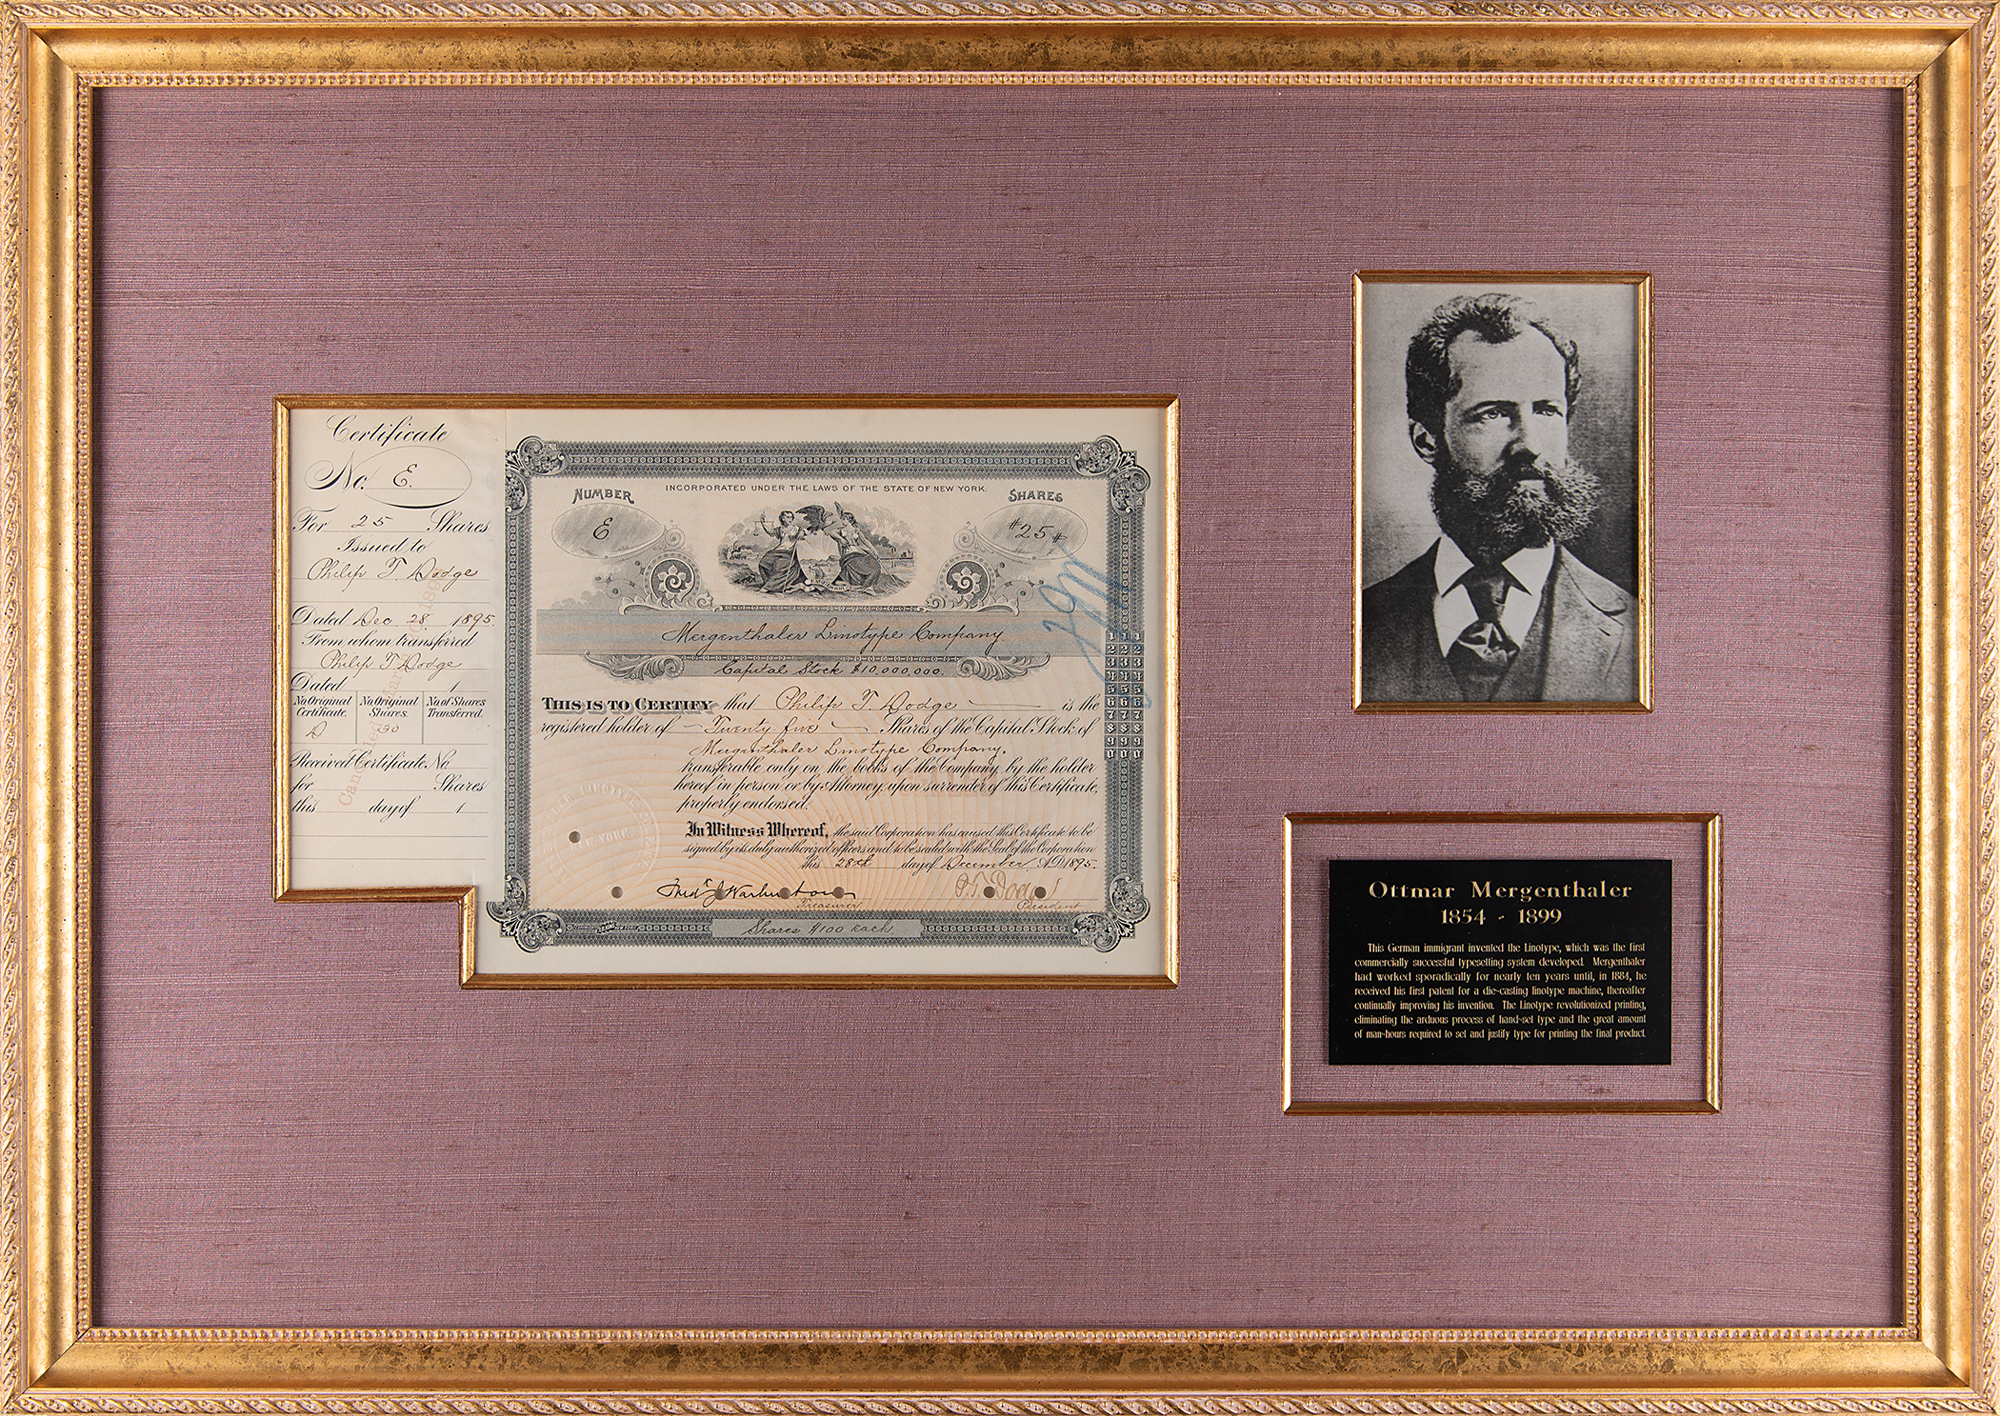 Certificate
No. E.
For 25 Shares
Issued to
Philip T. Dodge
Dated Dec. 28, 1895.
From whom transferred
Philip T Dodge
Dated 1
No. Original Certificate. No. Original Shares. No. of Shares Transferred.
D 90
Received Certificate No
for Shares
this day of 1
NUMBER
E
INCORPORATED UNDER THE LAWS OF THE STATE OF NEW YORK.
SHARES
#25#
Mergenthaler Linotype Company.
Capital Stock $10,000,000.
THIS IS TO CERTIFY that Philip T. Dodge is the
registered holder of Twenty five Shares of the Capital Stock of
Mergenthaler Linotype Company.
transferable only on the books of the Company by the holder
hereof in person or by Attorney, upon surrender of this Certificate,
properly endorsed.
In Witness Whereof, the said Corporation has caused this Certificate to be
signed by its duly authorized officers and to be sealed with the Seal of the Corporation
this 28th day of December, A.D. 1895.
Treasurer
P. T. Dodge
President
Shares $100 Each.
1 1 1
2 2 2
3 3 3
4 4 4
5 5 5
6 6 6
7 7 7
8 8 8
9 9 9
0 0 0
Ottmar Mergenthaler
1854 - 1899
This German immigrant invented the Linotype, which was the first
commercially successful typesetting system developed. Mergenthaler
had worked sporadically for nearly ten years until, in 1884, he
received his first patent for a die-casting linotype machine, thereafter
continually improving his invention. The Linotype revolutionized printing,
eliminating the arduous process of hand-set type and the great amount
of man-hours required to set and justify type for printing the final product.